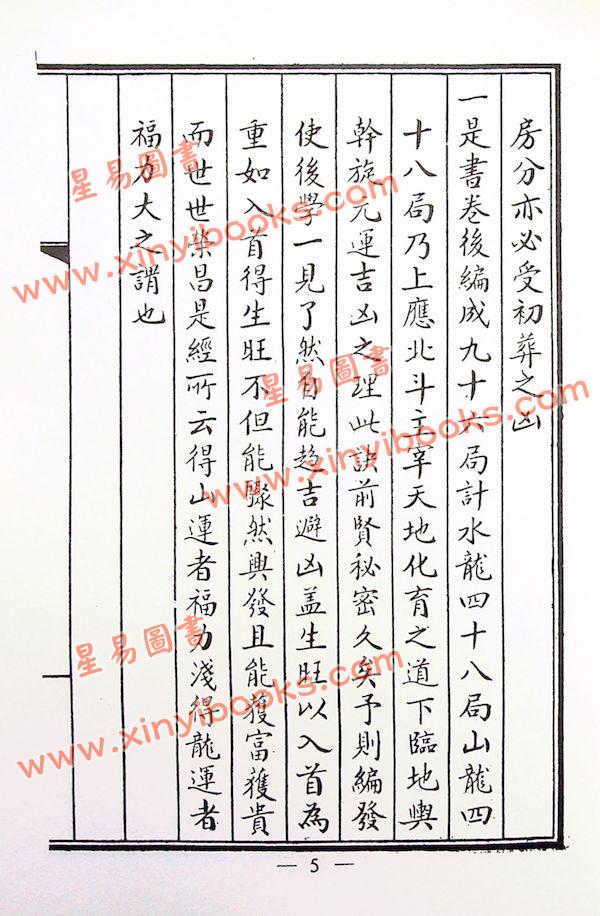 房分亦必受初葬之凶
一是書卷後編成九十六局計水龍四十八局山龍四
十八局乃上應北斗主宰天地化育之道下臨地輿
斡旋元運吉凶之理此訣前賢秘密久矣予則編發
使後學一見了然自能趋吉避凶盖生旺以入首為
重如入首得生旺不但能驟然興發且能獲富獲貴
而世世榮昌是經所云得山運者福力淺得龍運者
福力大之謂也
— 5 —
星易圖書
www.xinyibooks.com
星易圖書
www.xinyibooks.com
星易圖書
www.xinyibooks.com